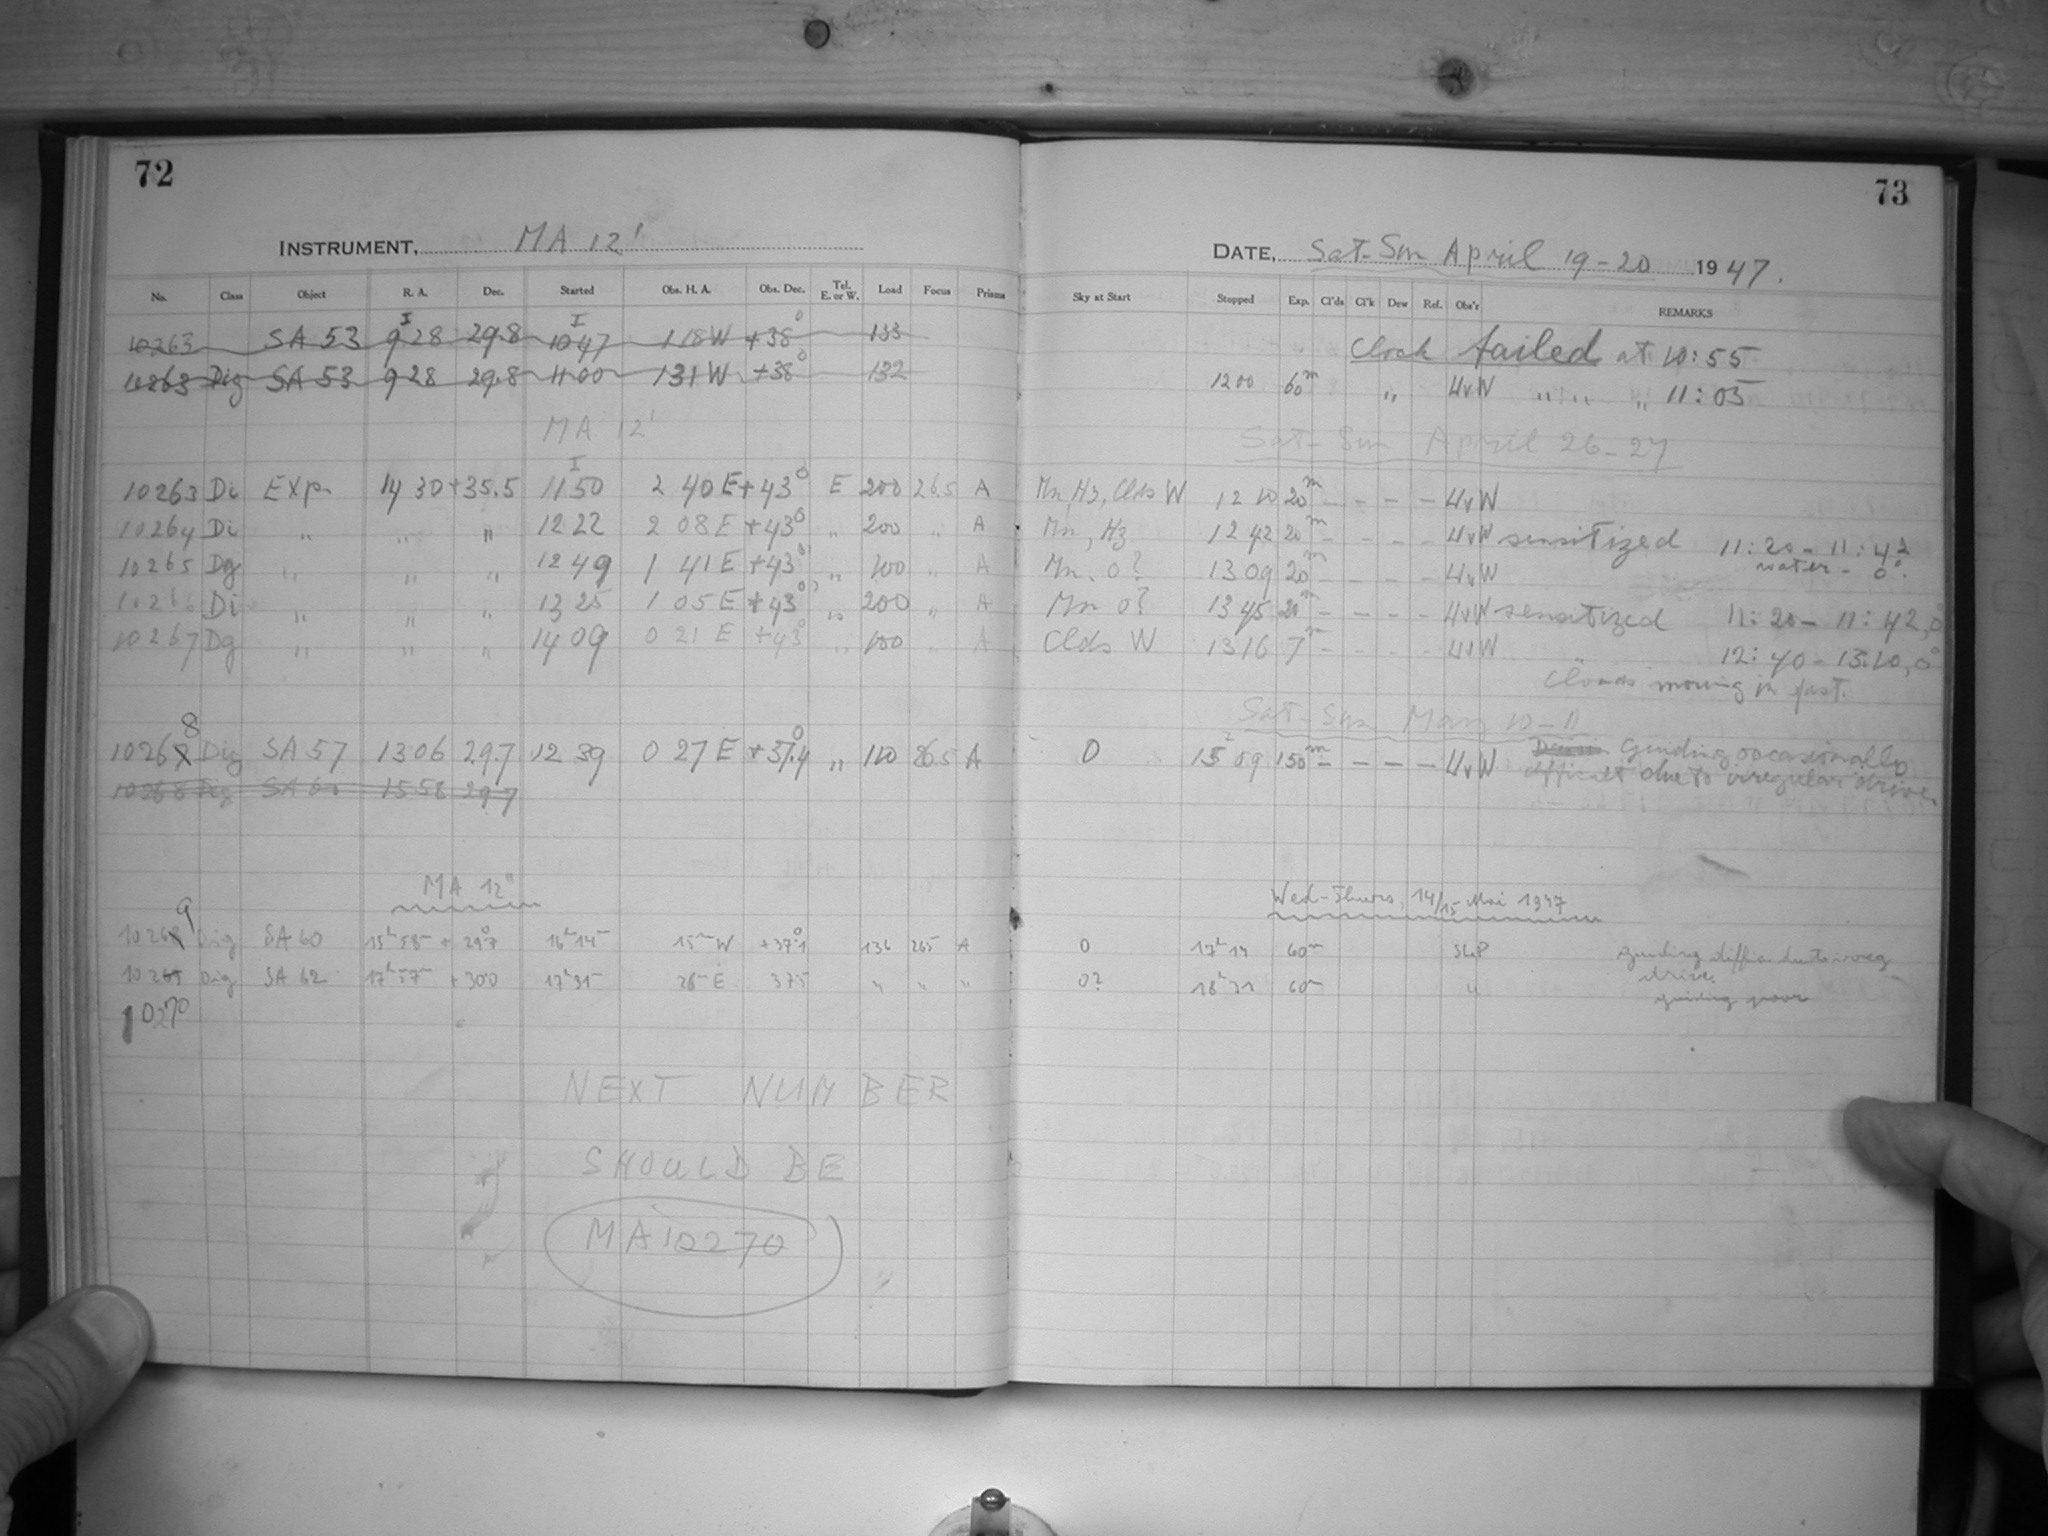 72
73
INSTRUMENT, MA 12'
DATE, Sat-Sun April 19-20 1947.
No. Class Object R. A. Dec. Started Obs. H. A. Obs. Dec. Tel. E. or W. Load Focus Prisms Sky at Start Stopped Exp. Cl'ds Cl'k Dew Ref. Obs'r REMARKS
10263 SA 53 9 28 29.8 10 47 1 18 W +38° 133 Clock failed at 10:55
10263 Dig SA 53 9 28 29.8 11 00 1 31 W +38° 132 12 00 60m " HvW " " " 11:05
MA 12' Sat-Sun April 26-27
10263 Di Exp. 14 30 +35.5 11 50 2 40 E +43° E 200 26.5 A Mn, Hz, Clds W 12 10 20m - - - - HvW
10264 Di " " " 12 22 2 08 E +43° " 200 " A Mn, Hz 12 42 20m - - - - HvW sensitized 11:20 - 11:42
water - 0°.
10265 Dg " " " 12 49 1 41 E +43° " 100 " A Mn. 0? 13 09 20m - - - - HvW
10266 Di " " " 13 25 1 05 E +43° " 200 " A Mn 0? 13 45 20m - - - - HvW sensitized 11:20 - 11:42, 0°
10267 Dg " " " 14 09 0 21 E +43° " 100 " A Clds W 13 16 7m - - - - HvW 12:40 - 13:10, 0°
Clouds moving in fast.
Sat-Sun May 10-11
10268 Dig SA 57 13 06 29.7 12 39 0 27 E +37.4 " 110 26.5 A 0 15 09 150m - - - - HvW Guiding occasionally
difficult due to irregular drive
10268 Dig SA 60 15 58 29.7
MA 12" Wed-Thurs, 14/15 Mai 1947
10269 Dig SA 60 15h 58m + 29°7 16h 14m 15m W +37°1 136 265 A 0 17h 14 60m guiding diffic. due to irreg
drive.
10269 Dig SA 62 17h 57m + 300 17h 31m 26m E 375 " " " 0? 18h 31 60m " guiding poor
10270
NEXT NUMBER
SHOULD BE
MA 10270